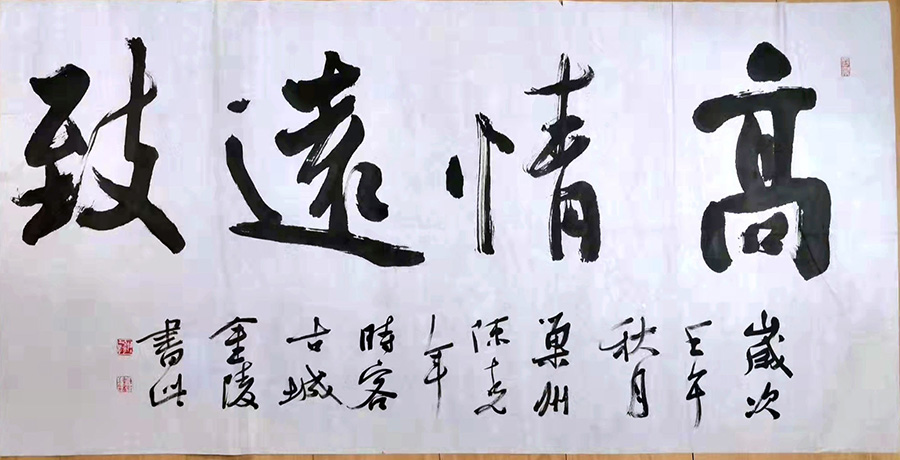 高情遠致
歲次
壬午
秋月
巢州
陳克
年
時客
古城
金陵
書此